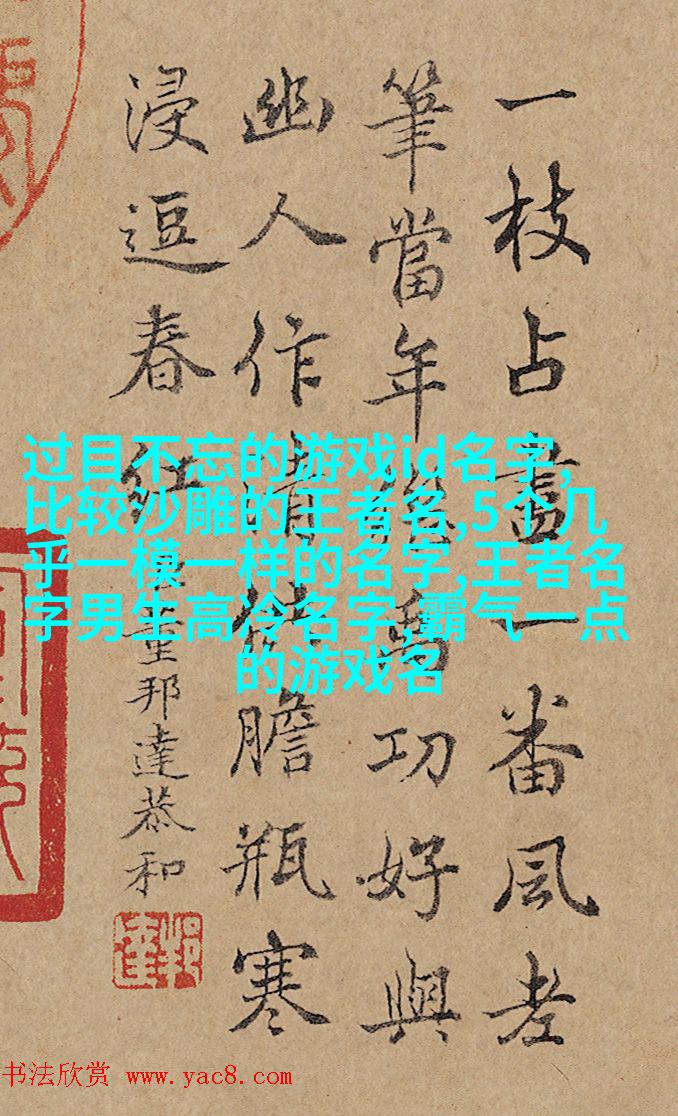 一枝占盡一番風老
筆當年爲功好與
幽人作清膽瓶寒
浸逗春紅
董邦達恭和
过目不忘的游戏id名字,
比较沙雕的王者名,5个几
乎一模一样的名字,王者名
字男生高冷名字,霸气一点
的游戏名
书法欣赏 www.yac8.com